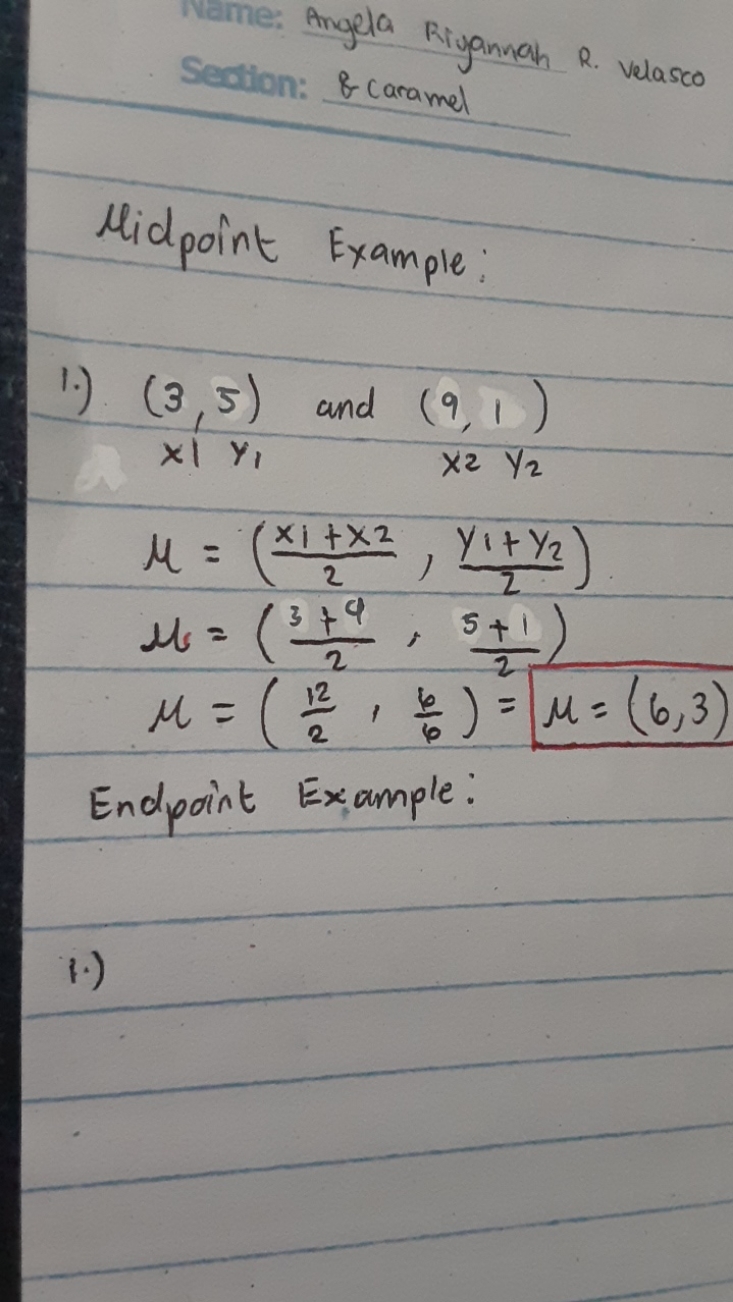 Name: Angela Riyannah R. Velasco
Section: 8 Caramel
Midpoint Example:
1.) (3, 5) and (9, 1)
x1 y1 x2 y2
M = (x1 + x2 / 2 , y1 + y2 / 2)
M = (3 + 9 / 2 , 5 + 1 / 2)
M = (12 / 2 , 6 / 6) = M = (6, 3)
Endpoint Example:
1.)